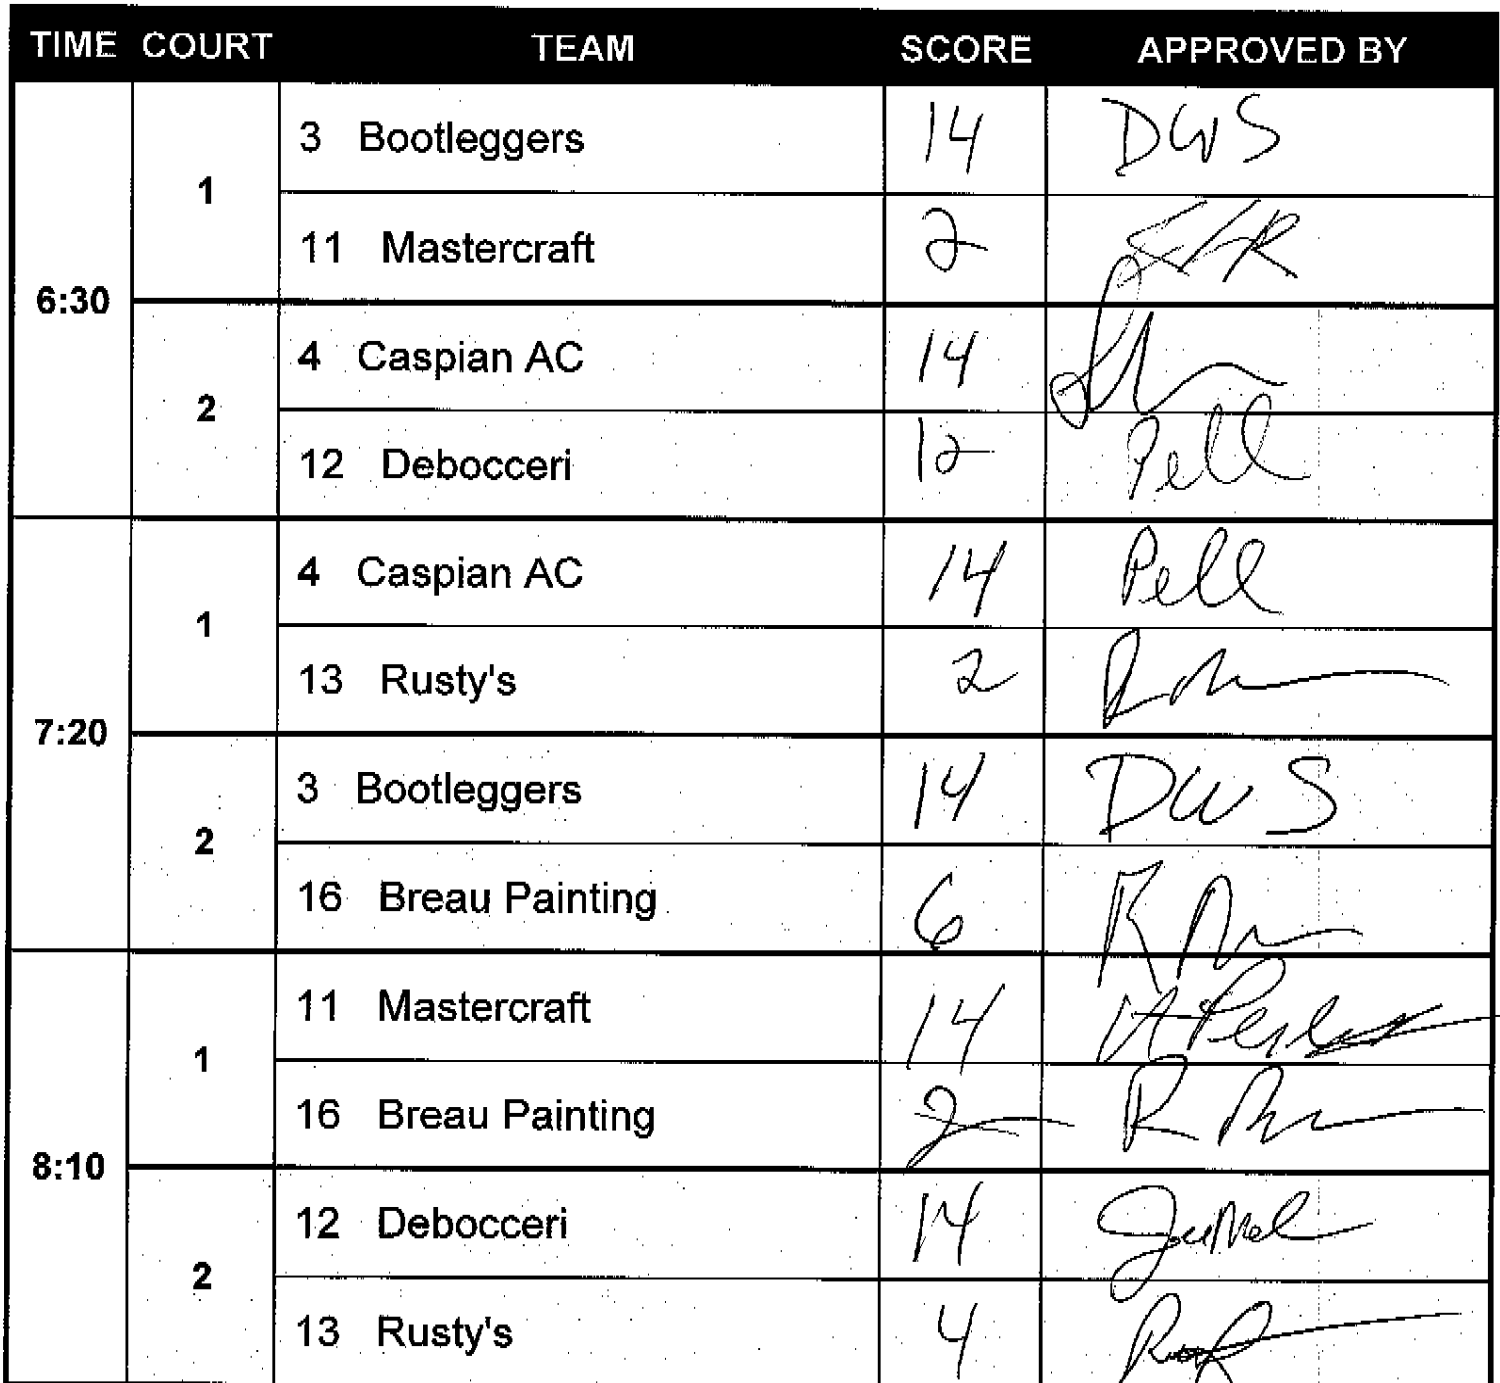 TIME COURT TEAM SCORE APPROVED BY
6:30
1
3 Bootleggers 14 DWS
11 Mastercraft 2
2
4 Caspian AC 14
12 Debocceri 12 Pell
7:20
1
4 Caspian AC 14 Pell
13 Rusty's 2
2
3 Bootleggers 14 DWS
16 Breau Painting 6
8:10
1
11 Mastercraft 14
16 Breau Painting 2
2
12 Debocceri 14
13 Rusty's 4